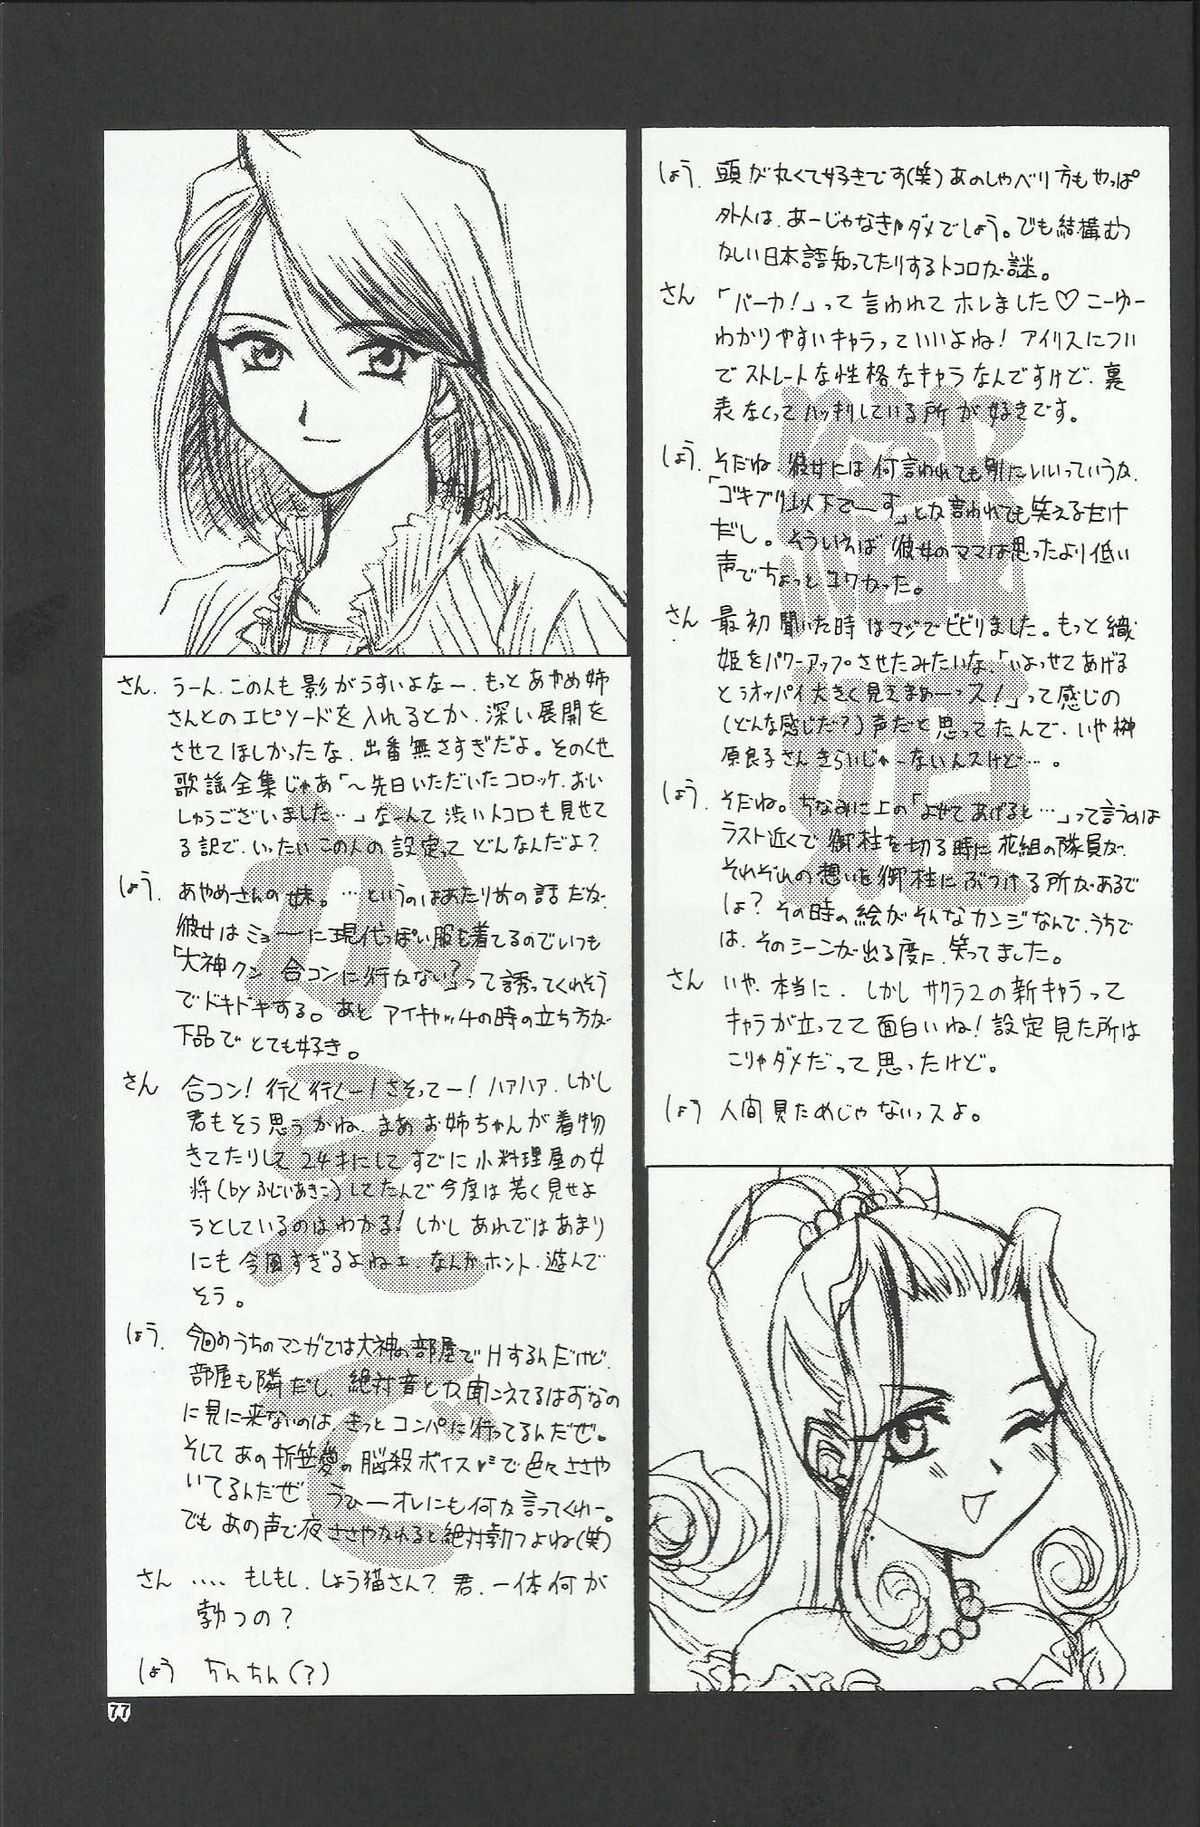 しょう. 頭が丸くて好きです(笑)あのしゃべり方もやっぱ
外人は、あーじゃなきゃダメでしょう。でも結構むつ
かしい日本語知ってたりするトコロが謎。
さん 「バーカ!」って言われてホレました♡こーゆー
わかりやすいキャラっていいよね!アイリスについ
でストレートな性格なキャラなんですけど、裏
表なくってハッキリしている所が好きです。
しょう. そだね、彼女には何言われても別にいいっていうか、
「ゴキブリ以下でーす」とか言われても笑えるだけ
だし。そういえば彼女のママは思ったより低い
声でちょっとコワかった。
さん 最初聞いた時はマジでビビりました。もっと織
姫をパワーアップさせたみたいな、「いよっせてあげる
とぅオッパイ大きく見えまぁーっス!」って感じの
(どんな感じだ?)声だと思ってたんで、いや榊
原良子さんきらいじゃーないんスけど…。
しょう. そだね。ちなみに上の「よせてあげると…」って言うのは
ラスト近くで御柱を切る時に花組の隊員が、
それぞれの想いを御柱にぶつける所があるで
しょ?その時の絵がそんなカンジなんで、うちで
は、そのシーンが出る度に、笑ってました。
さん いや、本当に、しかしサクラ2の新キャラって
キャラが立ってて面白いね!設定見た所は
こりゃダメだって思ったけど。
しょう 人間見ためじゃないっスよ。
織姫
さん. うーん、この人も影がうすいよなー、もっとあやめ姉
さんとのエピソードを入れるとか、深い展開を
させてほしかったな、出番無さすぎだよ。そのくせ
歌謡全集じゃあ「〜先日いただいたコロッケ、おい
しゅうございました…」なーんて渋いトコロも見せて
る訳で、いったいこの人の設定ってどんなんだよ?
しょう. あやめさんの妹。…というのはあたり前の話だが、
彼女はミョーに現代っぽい服を着てるのでいつも
「大神クン 合コンに行かない?」って誘ってくれそう
でドキドキする。あとアイキャッチの時の立ち方が
下品でとても好き。
さん 合コン!行く行くー!さそってー!ハァハァ、しかし
君もそう思うかね、まあお姉ちゃんが着物
きてたりして24才にしてすでに小料理屋の女
将(byふじいあきこ)してたんで今度は若く見せよ
うとしているのはわかる!しかしあれではあまり
にも今風すぎるよねェ、なんかホント、遊んで
そう。
しょう. 今回のうちのマンガでは大神の部屋でHするんだけど、
部屋も隣だし、絶対音とか聞こえてるはずなの
に見に来ないのは、きっとコンパに行ってるんだぜ。
そしてあの折笠愛の脳殺ボイスで色々ささや
いてるんだぜ うひーオレにも何か言ってくれー。
でもあの声で夜ささやかれると絶対勃つよね(笑)
さん ‥‥もしもし、しょう猫さん?君、一体何が
勃つの?
しょう ちんちん(?)
かえで
77